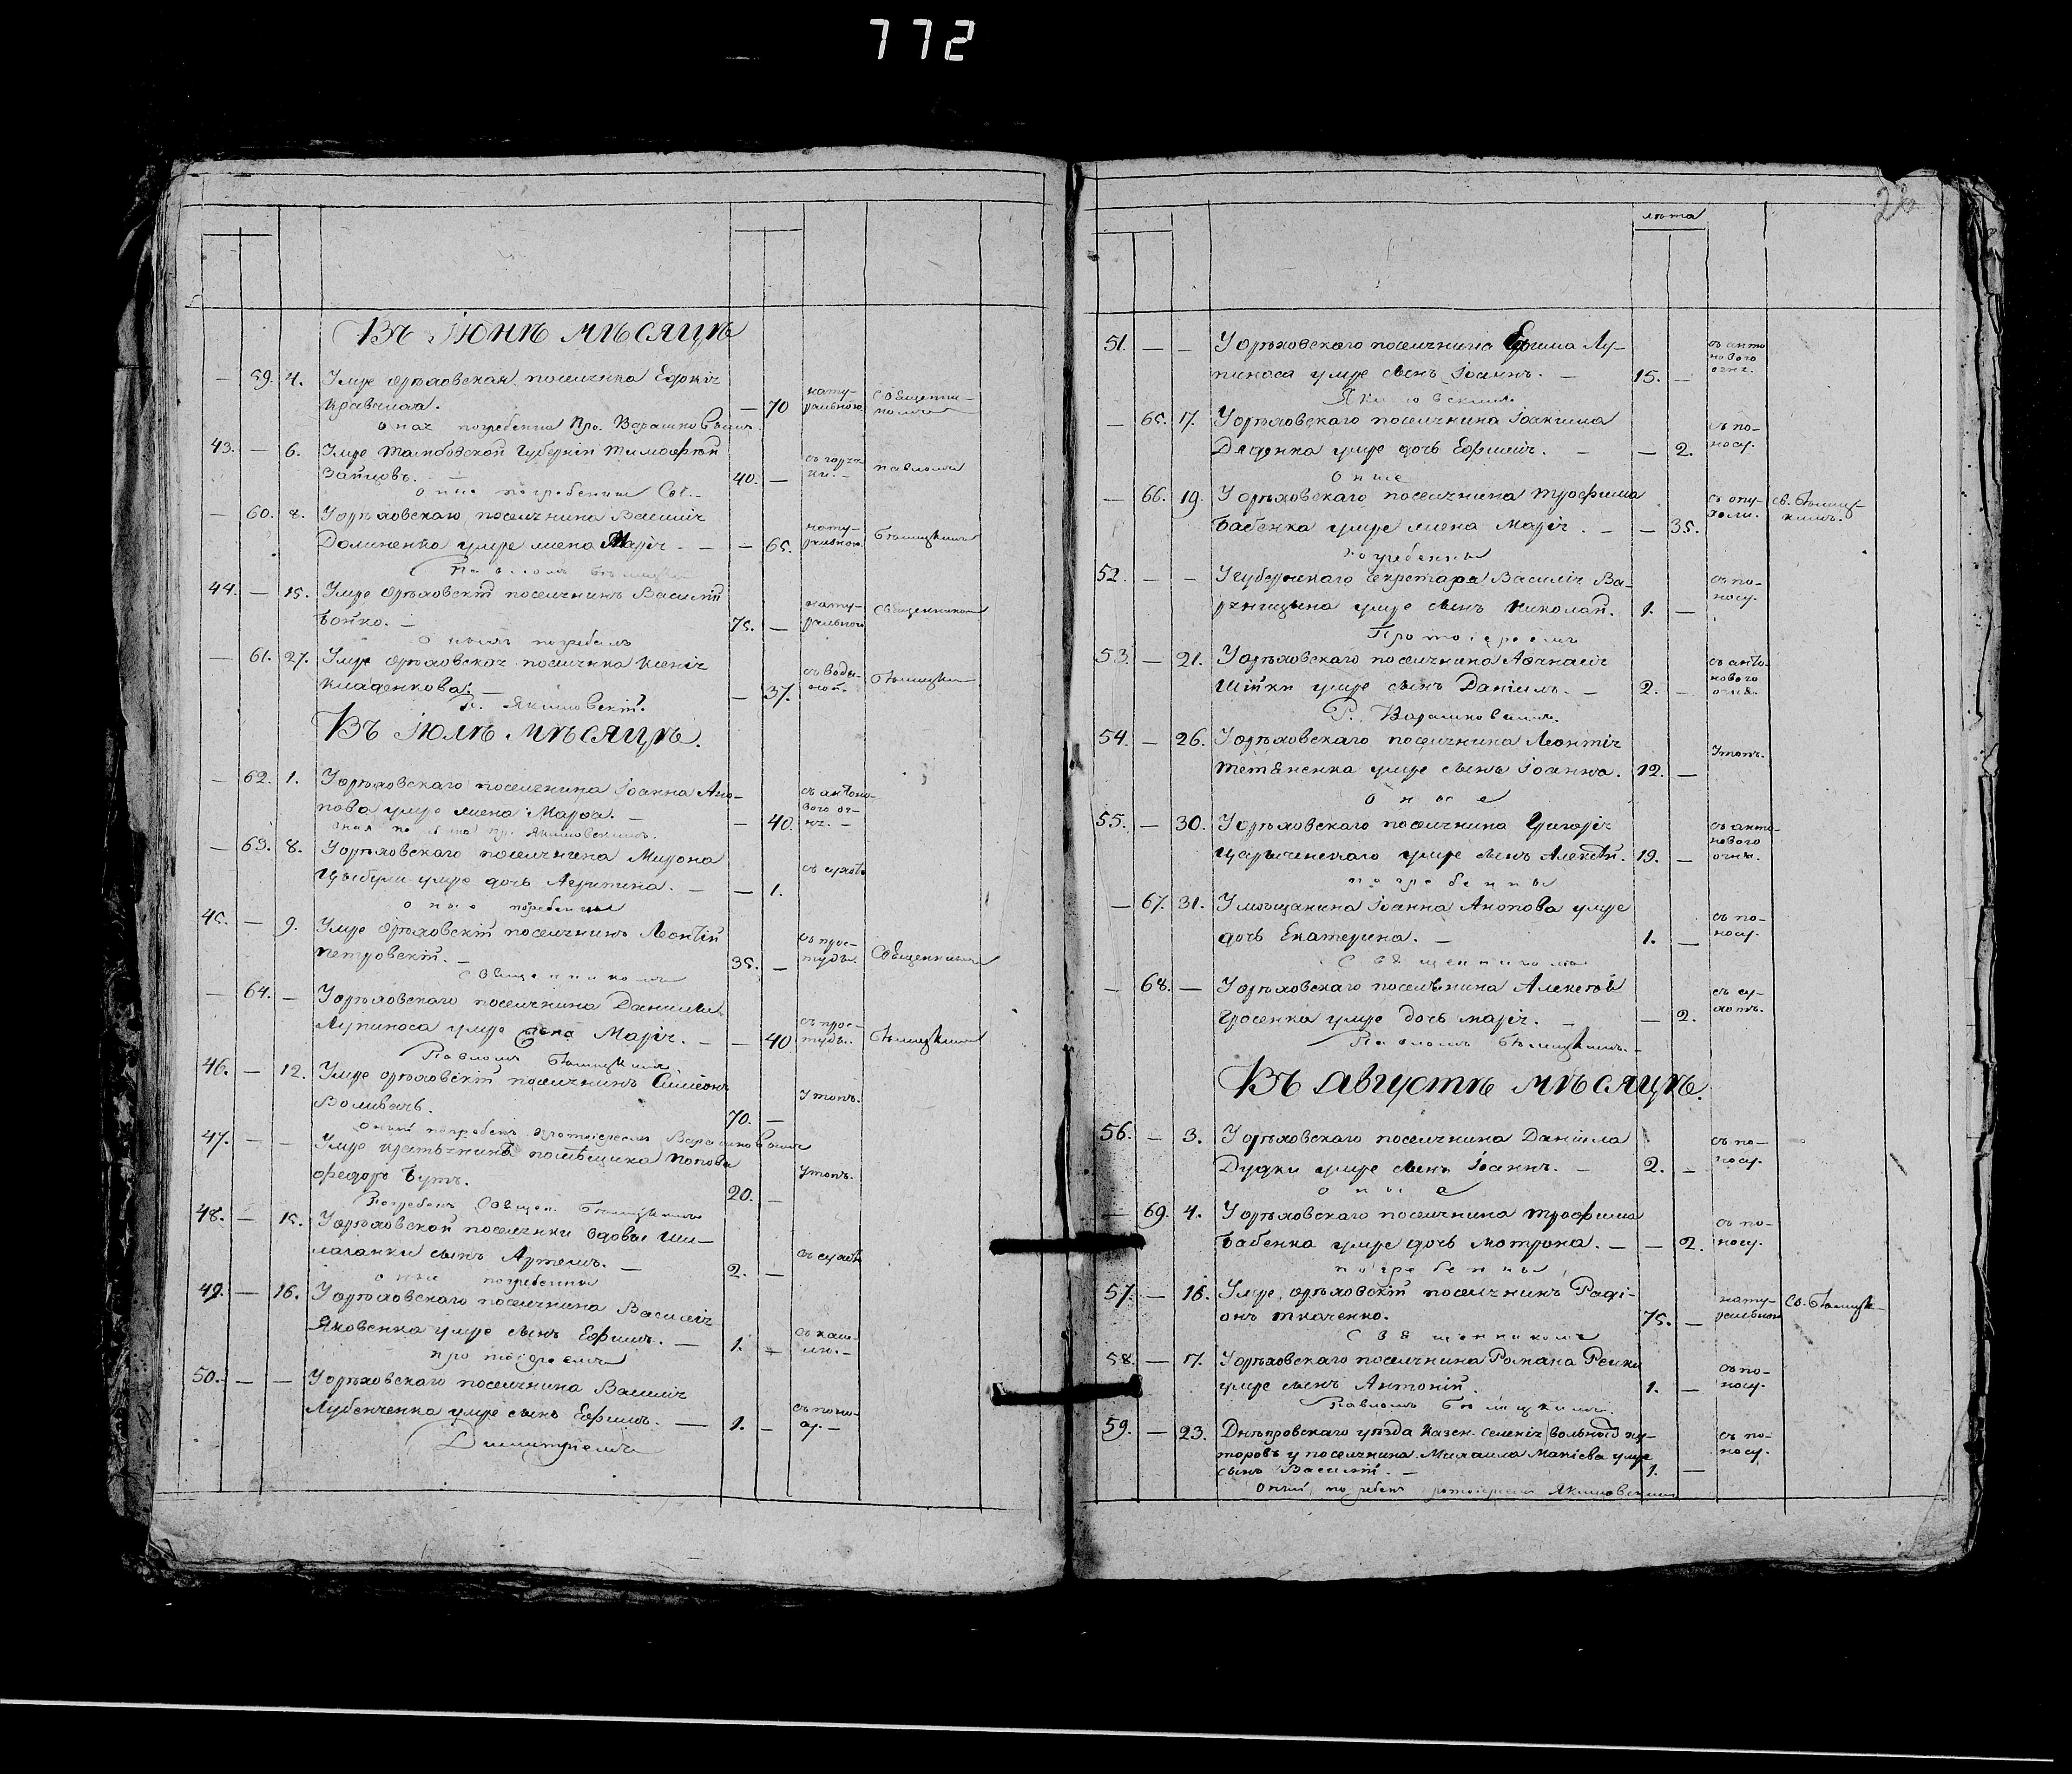 772
Въ Іюнѣ мѣсяцѣ
— 59. 4. Умре орѣховская поселянка Евфкія
Кравчиха. — 70 нату- ральною Священни- комъ
оная погребенна Про. Варашковскимъ
43. — 6. Умре Тамбовской Губерніи Тимофѣй
Зайцовъ. — 40. — съ горяч- ки. — Павломъ
оние погребенны Свя.
— 60. 8. У орѣховскаго поселянина Василія
Долиненка умре жена Марія. — — 65. нату- ральною Бѣлицкимъ
Павломъ Бѣлицки
44. — 15. Умре орѣховскій поселянинъ Василій
Бойко. — 75. — нату- ральной Священником
оныхъ погребалъ
— 61. 27. Умре орѣховская поселянка Ксенія
Кладенкова. — — 37. съ водя- ной. Бѣлицки
П. Якимовскій.
Въ Іюлѣ мѣсяцѣ.
— 62. 1. У орѣховскаго поселянина Іоанна Ано-
пова умре жена Марфа. — — 40. съ антоно- вого ог- ня. —
оная погребена пр. Якимовскимъ.
— 63. 8. У орѣховскаго поселянина Мирона
Цыбули умре дочь Агрипина. — — 1. съ сухотъ
оные погребенны
45. — 9. Умре орѣховскій поселянинъ Леонтій
Петровскій. — 35. — съ прос- туды. Священникомъ
Священникомъ
— 64. — У орѣховскаго поселянина Даниила
Лупиноса умре жена Марія. — — 40 съ прос- туды. Бѣлицкимъ
Павломъ Бѣлицкимъ.
46. — 12. Умре орѣховскій поселянинъ Симеонъ
Воливачъ. 70. — Утопъ.
оный погребенъ протоіереемъ Варашковскимъ
47. — — Умре крестьянинъ помѣщика Попова
Федоръ Бутъ. 20. — Утопъ.
Погребенъ Священ. Бѣлицкимъ
48. — 15. У орѣховской поселянки вдовы Ши-
лаганки сынъ Артемъ. — 2. — съ сухотъ
оние погребенны
49. — 16. У орѣховскаго поселянина Василія
Яковенка умре сынъ Ефимъ. — 1. — съ каш- ля. —
протоіереемъ
50. — — У орѣховскаго поселянина Василія
Лубенченка умре сынъ Ефимъ. — 1. — съ поно- су. —
Димитріемъ
26
лѣта
51. — — У орѣховскаго поселянина Ефима Лу-
пиноса умре сынъ Іоаннъ. — 15. — съ анто нового огня.
Якимовскимъ
— 65. 17. У орѣховскаго поселянина Іоакима
Дяденка умре дочь Ефимія. — — 2. съ по- носу.
Оние
— 66. 19. У орѣховскаго поселянина Трофима
Бабенка умре жена Марія. — — 35. съ опу- холи. Св. Бѣлиц- кимъ.
погребенны
52. — — У губернскаго секретаря Василія Ва-
рницына умре сынъ Николай. 1. — съ по- носу.
Протоіереемъ
53. — 21. У орѣховскаго поселянина Афанасія
Шійки умре сынъ Даніилъ. — 2. — съ анто- нового огня.
Р. Варашковскимъ.
54. — 26. У орѣховскаго поселянина Леонтія
Тетяненка умре сынъ Іоаннъ. 12. — Утопъ.
оные
55. — 30. У орѣховскаго поселянина Григорія
Царыченскаго умре сынъ Алексѣй. 19. — съ анто- нового огня.
погребенны
— 67. 31. У мѣщанина Іоанна Анопова умре
дочь Екатерина. — 1. — съ по- носу.
Священникомъ
— 68. — У орѣховскаго поселянина Алексѣя
Гросенка умре дочь Марія. — — 2. съ су- хотъ.
Павломъ Бѣлицкимъ.
Въ Августѣ мѣсяцѣ.
56. — 3. У орѣховскаго поселянина Даніила
Дудки умре сынъ Іоаннъ. — 2. — съ по- носу.
оные
— 69. 4. У орѣховскаго поселянина Трофима
Бабенка умре дочь Мотрона. — — 2. съ по- носу.
погребенны
57. — 16. Умре орѣховскій поселянинъ Раді-
онъ Ткаченко. 75. — нату- ральною Св. Бѣлицк-
Священникомъ
58. — 17. У орѣховскаго поселянина Романа Репки
умре сынъ Антоній. 1. — съ по- носу.
Павломъ Бѣлицкимъ.
59. — 23. Днѣпровскаго уѣзда Казен. селенія вольныхъ ху-
торовъ у поселянина Михаила Макіева умре
сынъ Василій. — 1. — съ по- носу.
оный погребенъ протоіереемъ Якимовскимъ